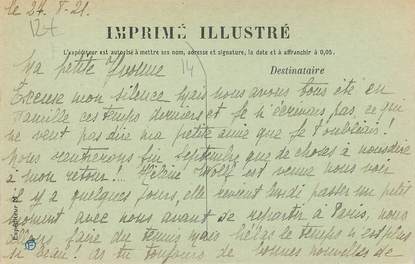 le 24.8-21.
IMPRIMÉ ILLUSTRÉ
L'expéditeur est autorisé à mettre ses nom, adresse et signature, la date et à affranchir à 0,05.
Ma petite Yvonne
14
Destinataire
Excuse mon silence mais nous avons tous été en
famille ces temps derniers et je n'écrivais pas, ce qui
ne veut pas dire ma petite amie que je t'oubliais!
Nous rentrerons fin septembre que de choses à nous dire
à mon retour! est venue nous voir
il y a quelques jours, elle revient lundi passer un petit
moment avec nous avant de repartir à Paris, nous
faire du tennis mais hélas le temps n'est plus
si beau! as tu toujours de bonnes nouvelles de
Expéditeur